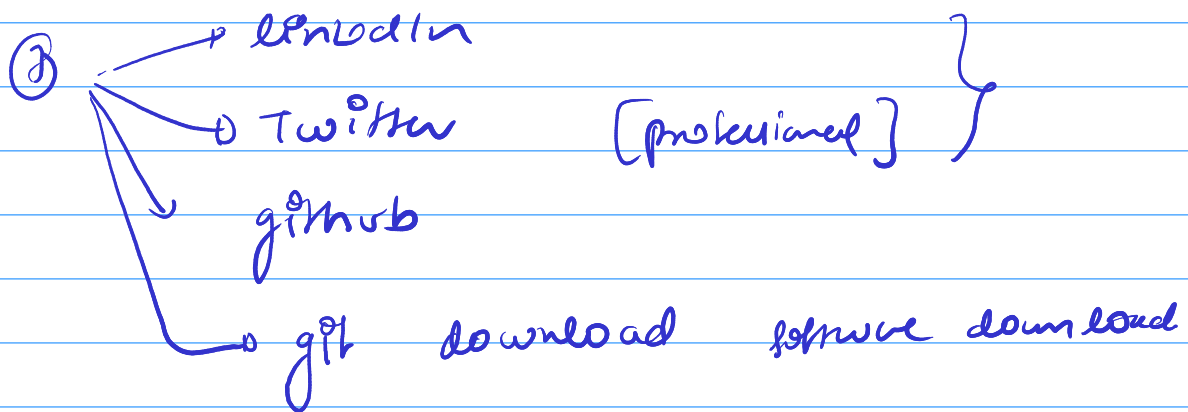 linkedIn
Twitter [professional]
github
git download software download